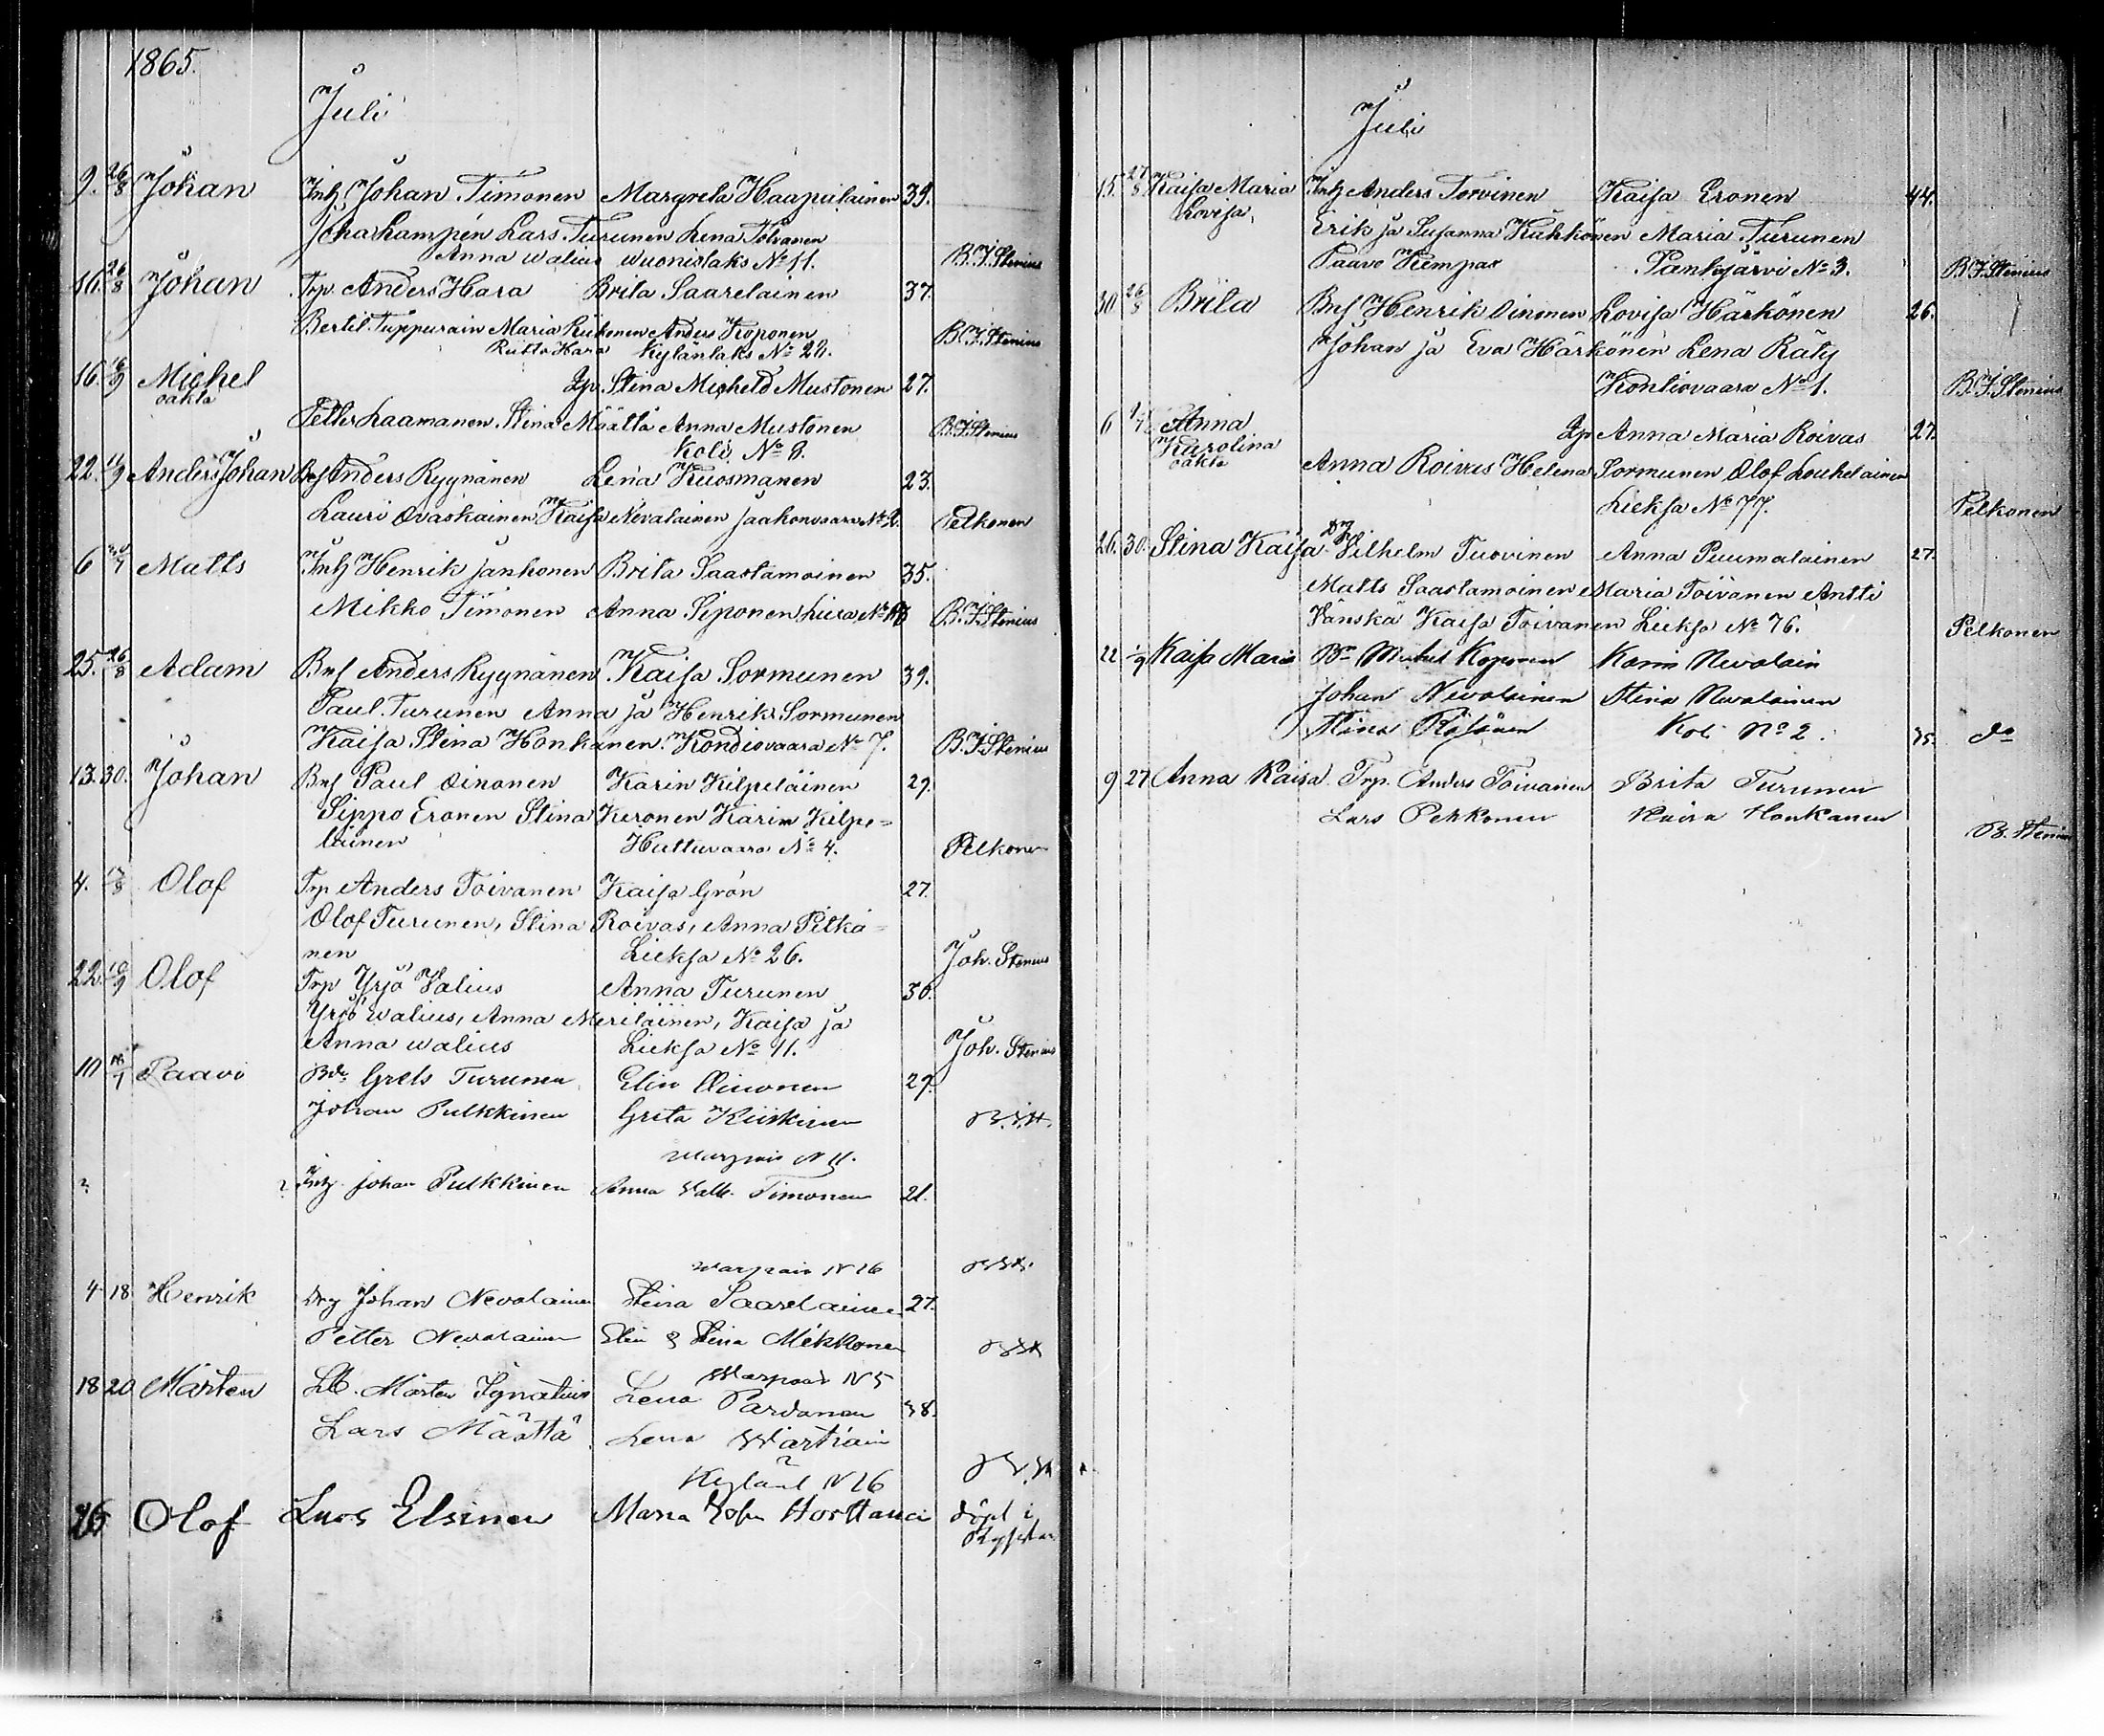 1865.
Juli
9. 26/8 Johan Inh Johan Timonen Margreta Haapalainen 39.
Juha Lampén Lars Turunen Lena Tolvanen
Anna Walius Wuonislaks No 11. B.J. Stenius
16. 26/8 Johan Trp. Anders Hara Brita Saarelainen 37.
Bertil Tuppurain Maria Riikonen Anders Koponen B.J. Stenius
Riitta Hara Kylänlaks No 28.
16. 16/9 Michel Stina Michelsd Mustonen 27.
oäkta
Petter Laamanen Stina Määttä Anna Mustonen B.J. Stenius
Koli No 8.
22. Anders Johan Anders Ryynänen Lena Kuosmanen 23.
Lauri Ovaskainen Kaisa Nevalainen Jaakonvaara No 2. Pelkonen
6 Matts Inh Henrik Jankonen Brita Saastamoinen 35.
Mikko Timonen Anna Siponen B.J. Stenius
25. 26/8 Adam Bns Anders Ryynänen Kaisa Sormunen 39.
Paul Turunen Anna ja Henrik Sormunen
Kaisa Stina Honkanen Kondiovaara No 7. B.J. Stenius
13. 30. Johan Bns Paul Oinonen Karin Kilpeläinen 29.
Sippo Eronen Stina Keronen Karin Kilpe=
läinen Hattuvaara No 4. Pelkonen
4. Olof Trp Anders Toivanen Kaisa Grön 27.
Olof Turunen, Stina Roivas, Anna Pitkä=
nen Lieksa No 26. Joh. Stenius
22. Olof Trp Yrjö Walius Anna Turunen 30.
Yrjö Walius, Anna Meriläinen, Kaisa ja
Anna Walius Lieksa No 11. Joh. Stenius
10 Paavo Grels Turunen Elin Oinonen 29.
Johan Pulkkinen Greta Kiiskinen
N 11.
? ? Inh. Johan Pulkkinen Anna Timonen 21.
N 26
4 18 Henrik Drg Johan Nevalainen Stina Saarelainen 27.
Petter Nevalainen Elin & Stina Mikkonen
N 5
18 20 Mårten Mårten Ignatius Lena Pardanen 38.
Lars Määttä Lena Wartiain
Kylänl N 26
26 Olof Lars Elsinen Maria Sofia Horttanai döpt i
Juli
15. 27/8 Kaisa Maria Inh Anders Torvinen Kaisa Eronen 44.
Lovisa,
Erik ja Susanna Kähkönen Maria Turunen
Paavo Kempas Pankajärvi No 3. B.J. Stenius
30 26/8 Brita Bns Henrik Oinonen Lovisa Härkönen 26.
Johan ja Eva Härkönen Lena Räty
Kontiovaara No 1. B.J. Stenius
6 Anna Anna Maria Roivas 27.
Karolina
oäkta Anna Roivas Helena Sormunen Olof Louhelainen
Lieksa No 77. Pelkonen
26. 30. Stina Kaisa Vilhelm Tuovinen Anna Puumalainen 27.
Matts Saastamoinen Maria Toivanen Antti
Vänskä Kaisa Toivanen Lieksa No 76. Pelkonen
22 1/9 Kaisa Maria Michel Koponen Karin Nevalain
Johan Nevalainen Stina Nevalainen
Stina Koli No 2. 35. do
9 27 Anna Kaisa Trp. Anders Toivanen Brita Turunen
Lars Pekkonen Kaisa Honkanen
B. Stenius